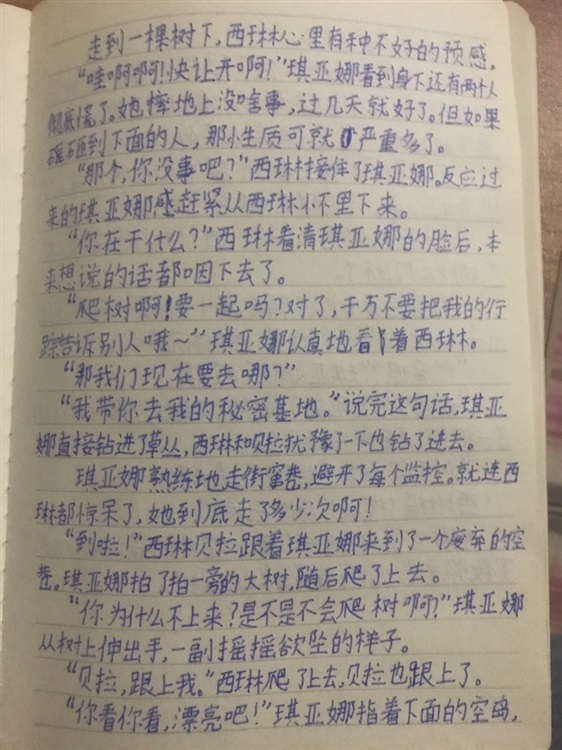 走到一棵树下，西琳心里有种不好的预感。
“哇啊啊！快让开啊！”琪亚娜看到身下还有两个人
彻底慌了。她摔地上没啥事，过几天就好了。但如果
砸到下面的人，那小生质可就严重多了。
“那个，你没事吧？”西琳接住了琪亚娜。反应过
来的琪亚娜感赶紧从西琳怀里下来。
“你在干什么？”西琳看清琪亚娜的脸后，本
来想说的话都咽下去了。
“爬树啊！要一起吗？对了，千万不要把我的行
踪告诉别人哦～”琪亚娜认真地看着西琳。
“那我们现在要去哪？”
“我带你去我的秘密基地。”说完这句话，琪亚
娜直接钻进了草丛，西琳和贝拉犹豫了一下也钻了进去。
琪亚娜熟练地走街窜巷，避开了每个监控。就连西
琳都惊呆了，她到底走了多少次啊！
“到啦！”西琳贝拉跟着琪亚娜来到了一个废弃的空
巷。琪亚娜拍了拍一旁的大树，随后爬了上去。
“你为什么不上来？是不是不会爬树啊？”琪亚娜
从树上伸出手，一副摇摇欲坠的样子。
“贝拉，跟上我。”西琳爬了上去，贝拉也跟上了。
“你看你看，漂亮吧！”琪亚娜指着下面的空岛，